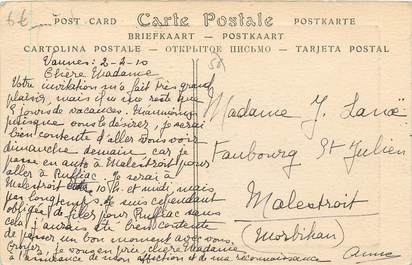 6€
58
POST CARD Carte Postale POSTKARTE
BRIEFKAART - POSTKAART
CARTOLINA POSTALE - ОТКРЫТОЕ ПИСЬМО - TARJETA POSTAL
Vannes: 2-2-10
Chère Madame
Votre invitation m'a fait très grand
plaisir, mais il ne reste que
jours de vacances.
puisque vous le désirez, je serai
bien contente d'aller vous voir
dimanche demain car je
passe en auto à Malestroit pour
aller à Ruffiac. Je serai à
Malestroit 10h. et midi, mais
pas longtemps. Je suis cependant
obligée de filer pour Ruffiac sans
cela j'aurais été bien contente
de passer un bon moment avec vous.
Croyez, je vous en prie chère Madame
à l'assurance de mon affection et de ma reconnaissance
Anne
Madame J. Lanoë
Faubourg St Julien
Malestroit
(Morbihan)